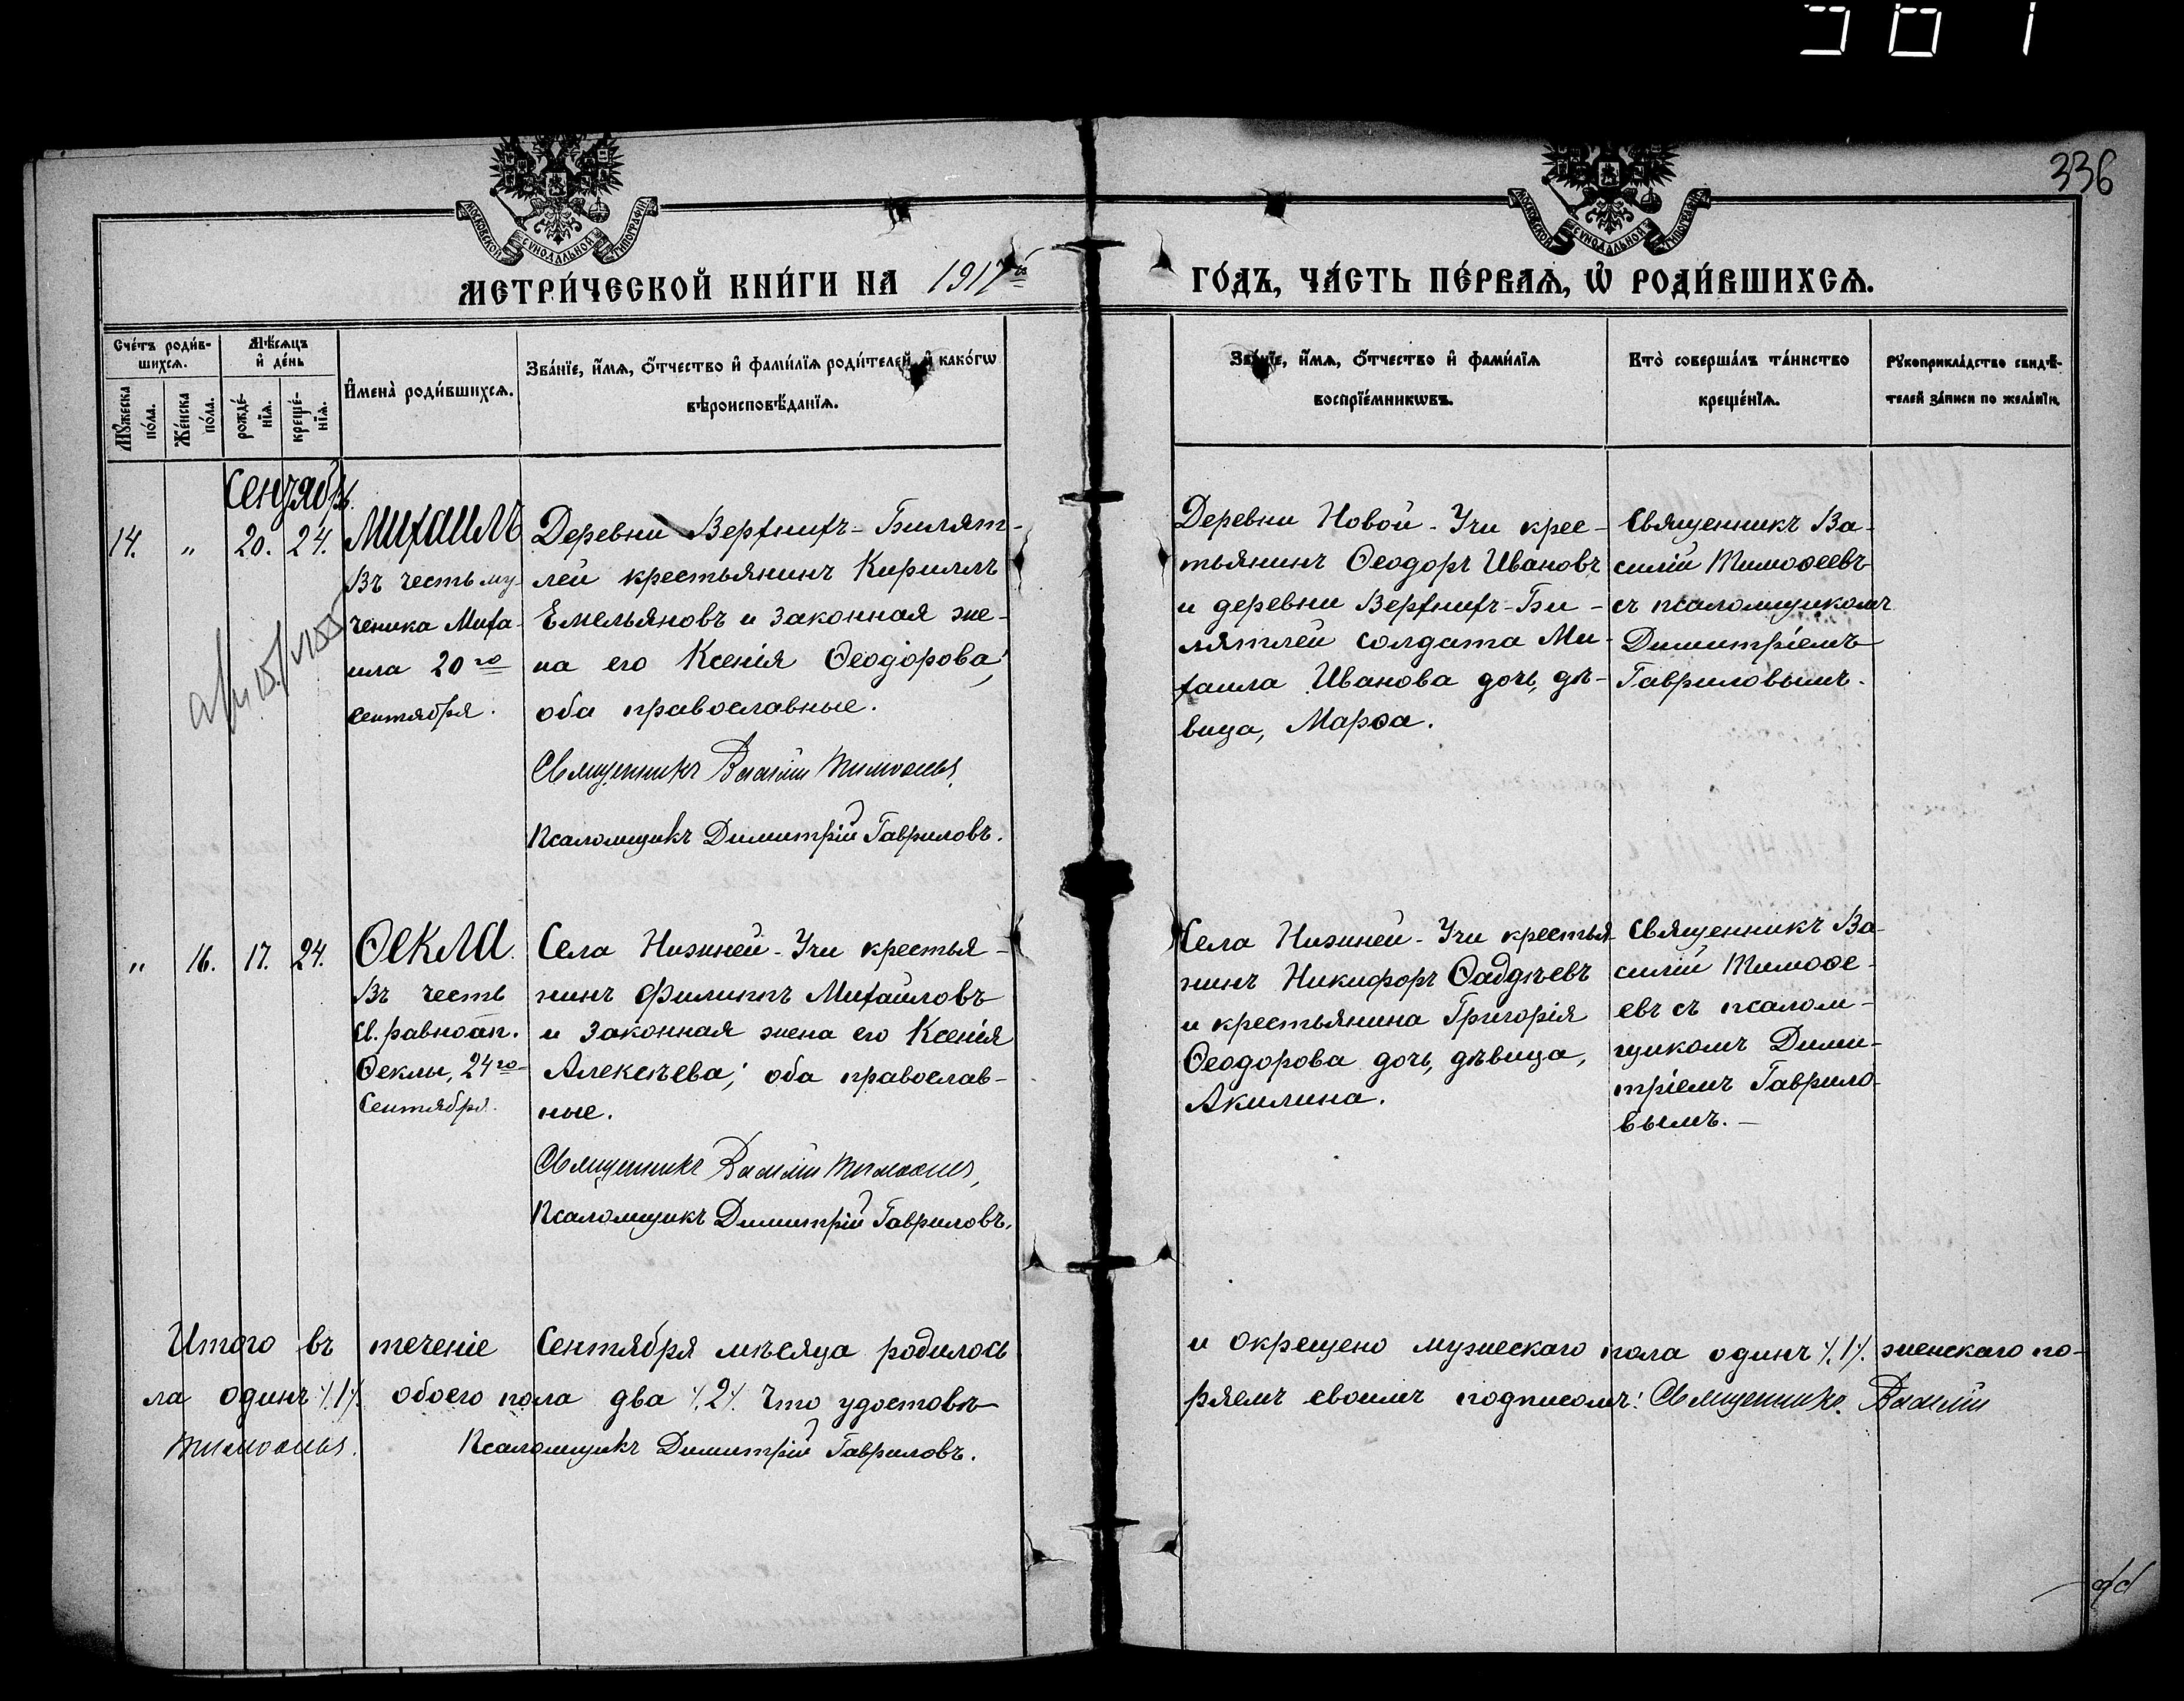 336
МОСКОВСКОЙ СѴНОДАЛЬНОЙ ТИПОГРАФІИ
МОСКОВСКОЙ СѴНОДАЛЬНОЙ ТИПОГРАФІИ
МЕТРИ́ЧЕСКОЙ КНИ́ГИ НА 1917й
ГО́ДЪ, ЧА́СТЬ ПЕ́РВАѦ, Ѡ҆ РОДИ́ВШИХСѦ.
Сче́тъ роди́в-
шихсѧ.
Мѣ́сѧцъ
и҆ де́нь
Мꙋ́жеска
по́ла.
Же́нска
по́ла.
рожде́-
нїѧ.
креще́-
нїѧ.
И҆мена̀ роди́вшихсѧ.
Зва́нїе, и҆́мѧ, ѻ҆́тчество и҆ фами́лїѧ роди́телей, и҆ како́гѡ
вѣроисповѣ́данїѧ.
Зва́нїе, и҆́мѧ, ѻ҆́тчество и҆ фами́лїѧ
воспрїе́мникѡвъ.
Кто̀ соверша́лъ та́инство
креще́нїѧ.
Рꙋкоприкла́дство свидѣ́-
телей за́писи по жела́нїю.
Сентябрь.
14. " 20. 24.
Михаилъ
Въ честь му-
ченика Миха-
ила 20го
сентября.
Деревни Верхнихъ-Билят-
лей крестьянинъ Кириллъ
Емельяновъ и законная же-
на его Ксенія Ѳеодорова;
оба православные.
Священникъ Василій Тимоѳеевъ,
Псаломщикъ Димитрій Гавриловъ.
Деревни Новой-Учи крес-
тьянинъ Ѳеодоръ Ивановъ
и деревни Верхнихъ-Би-
лятлей солдата Ми-
хаила Иванова дочь, дѣ-
вица, Марѳа.
Священникъ Ва-
силій Тимоѳеевъ
съ псаломщикомъ
Димитріемъ
Гавриловымъ.
" 16. 17. 24.
Ѳекла.
Въ честь
св. равноап.
Ѳеклы, 24го
Сентября.
Села Нижней-Учи крестья-
нинъ Филиппъ Михайловъ
и законная жена его Ксенія
Алексѣева; оба православ-
ные.
Священникъ Василій Тимоѳеевъ,
Псаломщикъ Димитрій Гавриловъ.
Села Нижней-Учи крестья-
нинъ Никифоръ Ѳаддѣевъ
и крестьянина Григорія
Ѳеодорова дочь, дѣвица,
Акилина.
Священникъ Ва-
силій Тимоѳе-
евъ съ псалом-
щикомъ Дими-
тріемъ Гаврило-
вымъ.—
Итого въ теченіе Сентября мѣсяца родилось
и окрещено мужескаго пола одинъ ./.1./. женскаго по-
ла одинъ ./.1./. обоего пола два ./.2./. Что удостовѣ-
ряемъ своимъ подписомъ: Священникъ Василій
Тимоѳеевъ. Псаломщикъ Димитрій Гавриловъ.